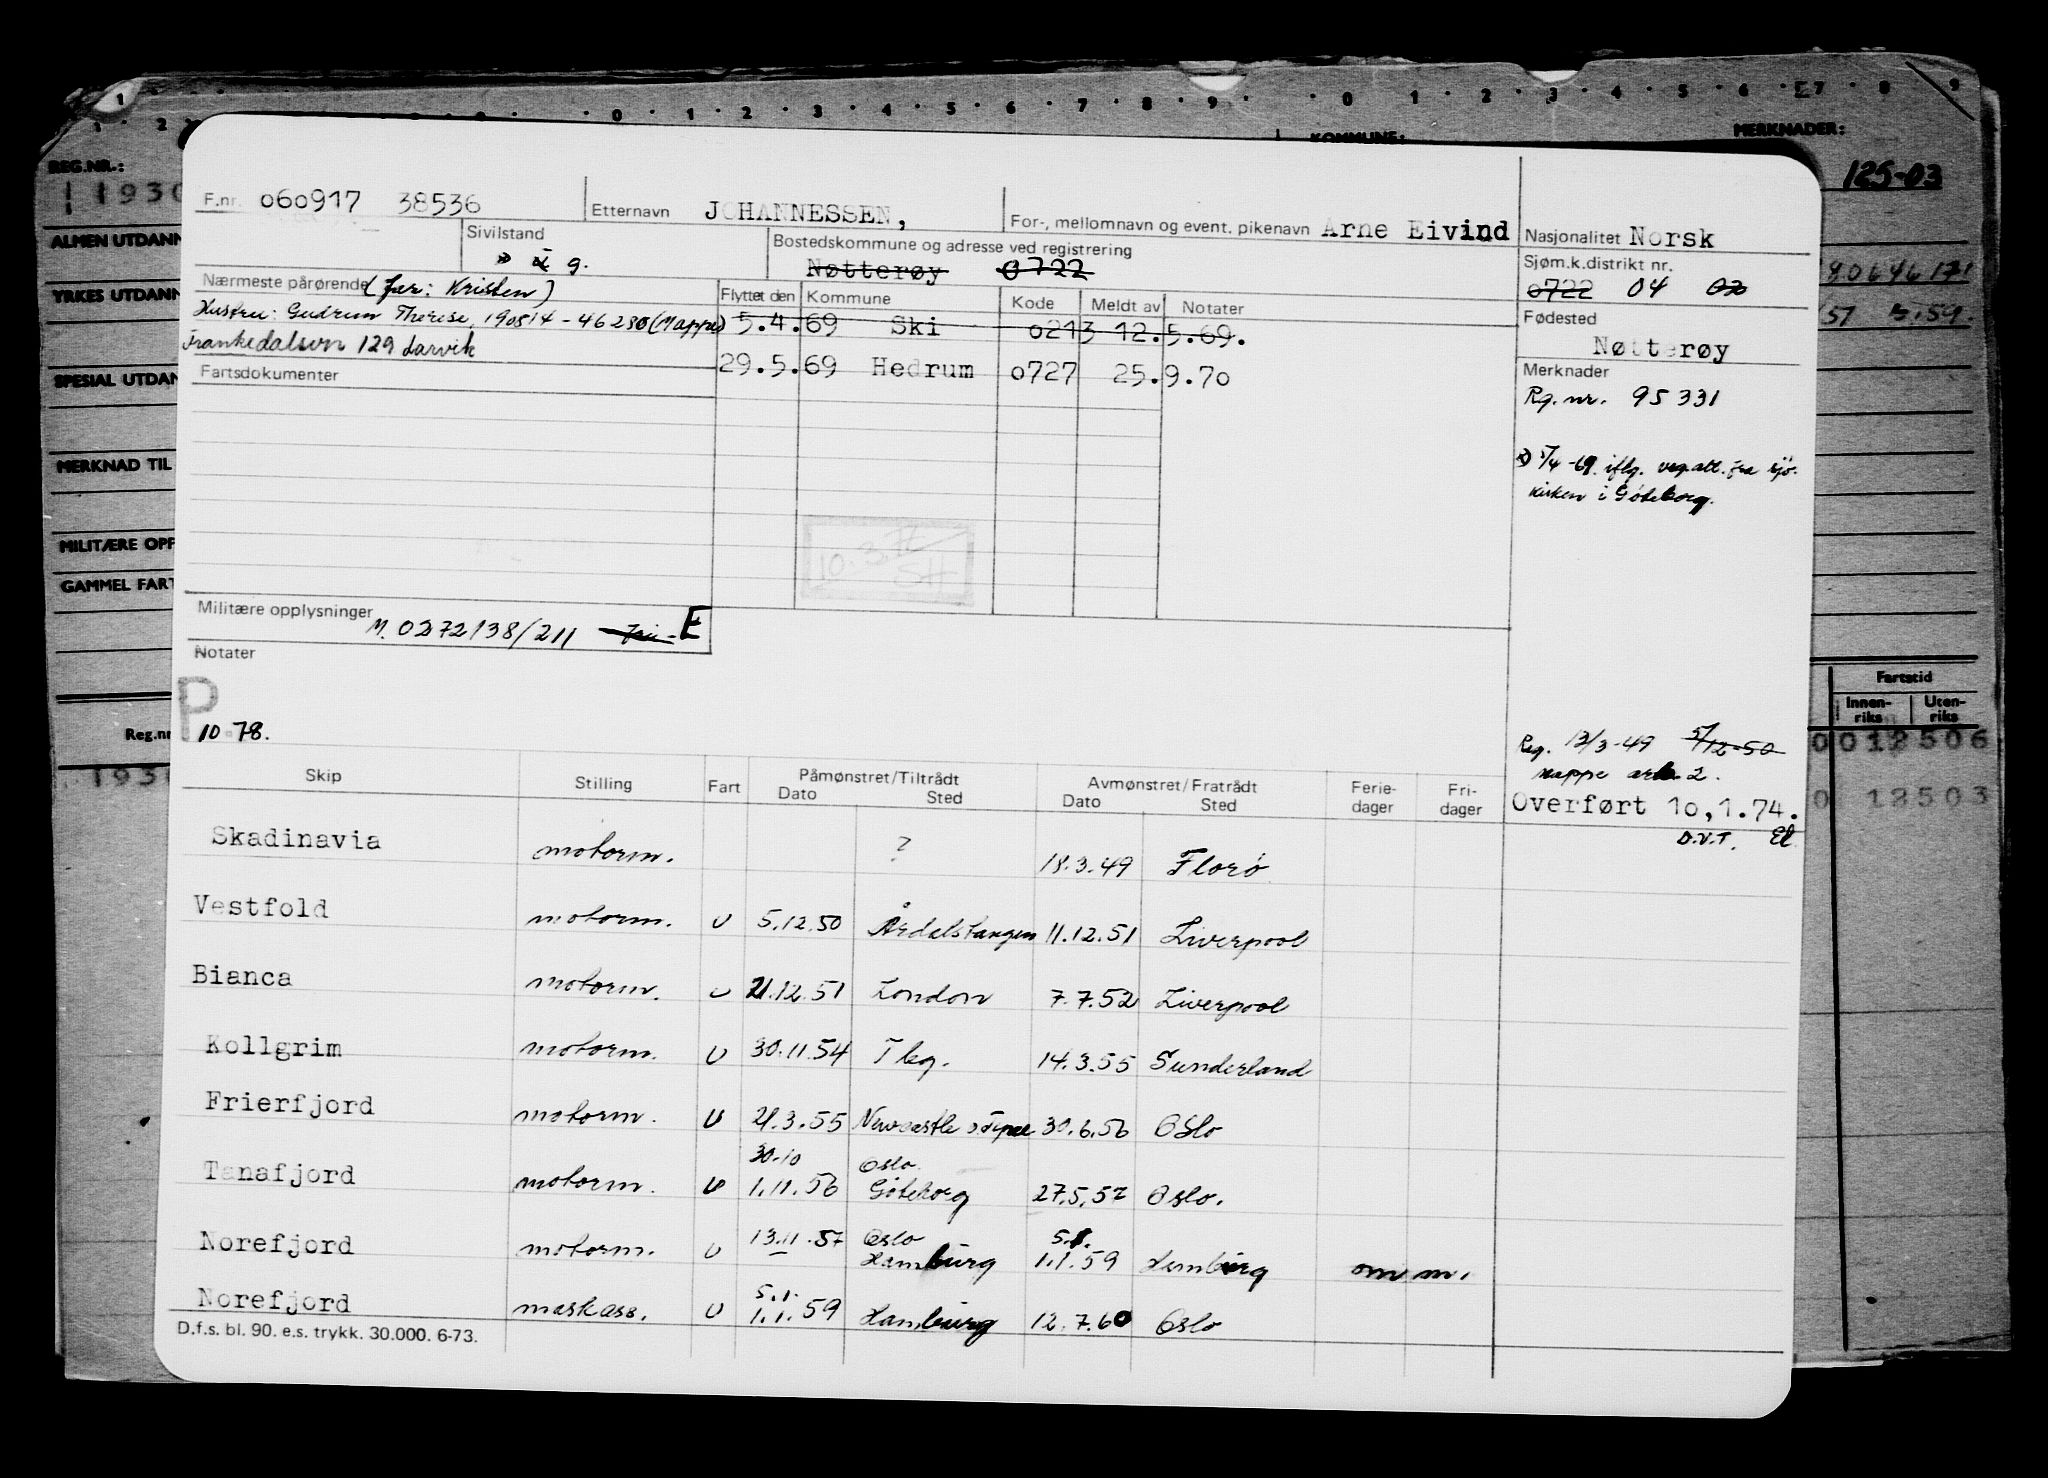 1 2 0 1 2 3 4 5 6 7 8 9 0 1 2 3 4 5 6 7 8 9
KOMMUNE: MERKNADER:
REG.NR.:
125-03
1930
F.nr. 060917 38536 Etternavn JOHANNESSEN, For-, mellomnavn og event. pikenavn Arne Eivind
Nasjonalitet Norsk
ALMEN UTDANN
Sivilstand
g.
Bostedskommune og adresse ved registrering
Nøtterøy 0722
Sjøm.k.distrikt nr.
0722 04
Nærmeste pårørende (far: Kristen)
Hustru: Gudrun Therese, 190814-46230 (Mappe)
Frankedalsvn 129 Larvik
YRKES UTDANN
Flyttet den Kommune Kode Meldt av Notater
5.4.69 Ski 0213 12.5.69.
29.5.69 Hedrum 0727 25.9.70
Fødested
Nøtterøy
Fartsdokumenter
SPESIAL UTDAN
Merknader
Rg. nr. 95331
5/4-69 iflg. veg.att. fra sjø-
kirken i Göteborg.
MERKNAD TIL
MILITÆRE OPP
GAMMEL FART
10.3.7
SH
Militære opplysninger M. 0272138/211 E
Notater
P
10-78.
Fartstid
Innen-riks Uten-riks
Reg.nr
0012506
1930
0 12503
Reg. 13/3-49 5/12-50
mappe ark 2.
Overført 10,1.74.
D.V.T. El
Skip Stilling Fart Påmønstret/Tiltrådt Avmønstret/Fratrådt Ferie-dager Fri-dager
Dato Sted Dato Sted
Skadinavia motorm. ? 18.3.49 Florø
Vestfold motorm. U 5.12.50 Årdalstangen 11.12.51 Liverpool
Bianca motorm. U 21.12.51 London 7.7.52 Liverpool
Kollgrim motorm. U 30.11.54 Tbg. 14.3.55 Sunderland
Frierfjord motorm. U 21.3.55 Newcastle 30.6.56 Oslo
30.10 Oslo
Tanafjord motorm. U 1.11.56 Göteborg 27.5.57 Oslo.
13.11.57 Oslo 5.1.
Norefjord motorm. U Hamburg 1.1.59 Hamburg omm.
5.1.
Norefjord maskass. U 1.1.59 Hamburg 12.7.60 Oslo
D.f.s. bl. 90. e.s. trykk. 30.000. 6-73.